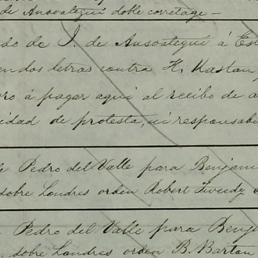 de Ansoategui doble corretage —
do de J. de Ansoategui á Es
endos letras contra H. Kastan
ro á pagar aqui al recibo de a
idad de protesta, ni responsabi
Pedro del Valle para Benjami
sobre Londres orden Robert Tweedy
Pedro del Valle para Benj
sobre Londres orden B. Bartan